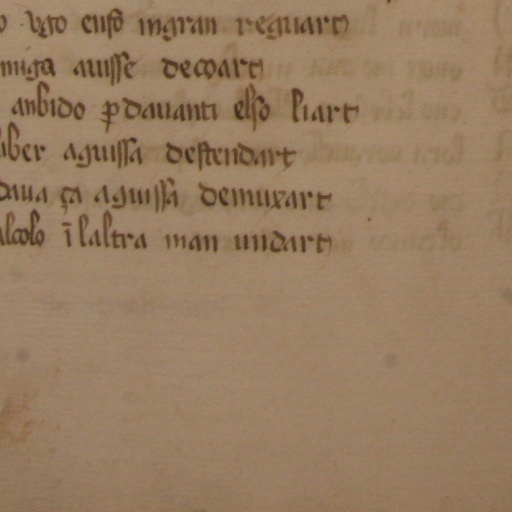 o vgo enso ingran reguart
miga auisse decoart
anbido ꝑ dauanti elso liart
iber aguissa destendart
daua ça aguissa demuxart
alcolo ī laltra man undart